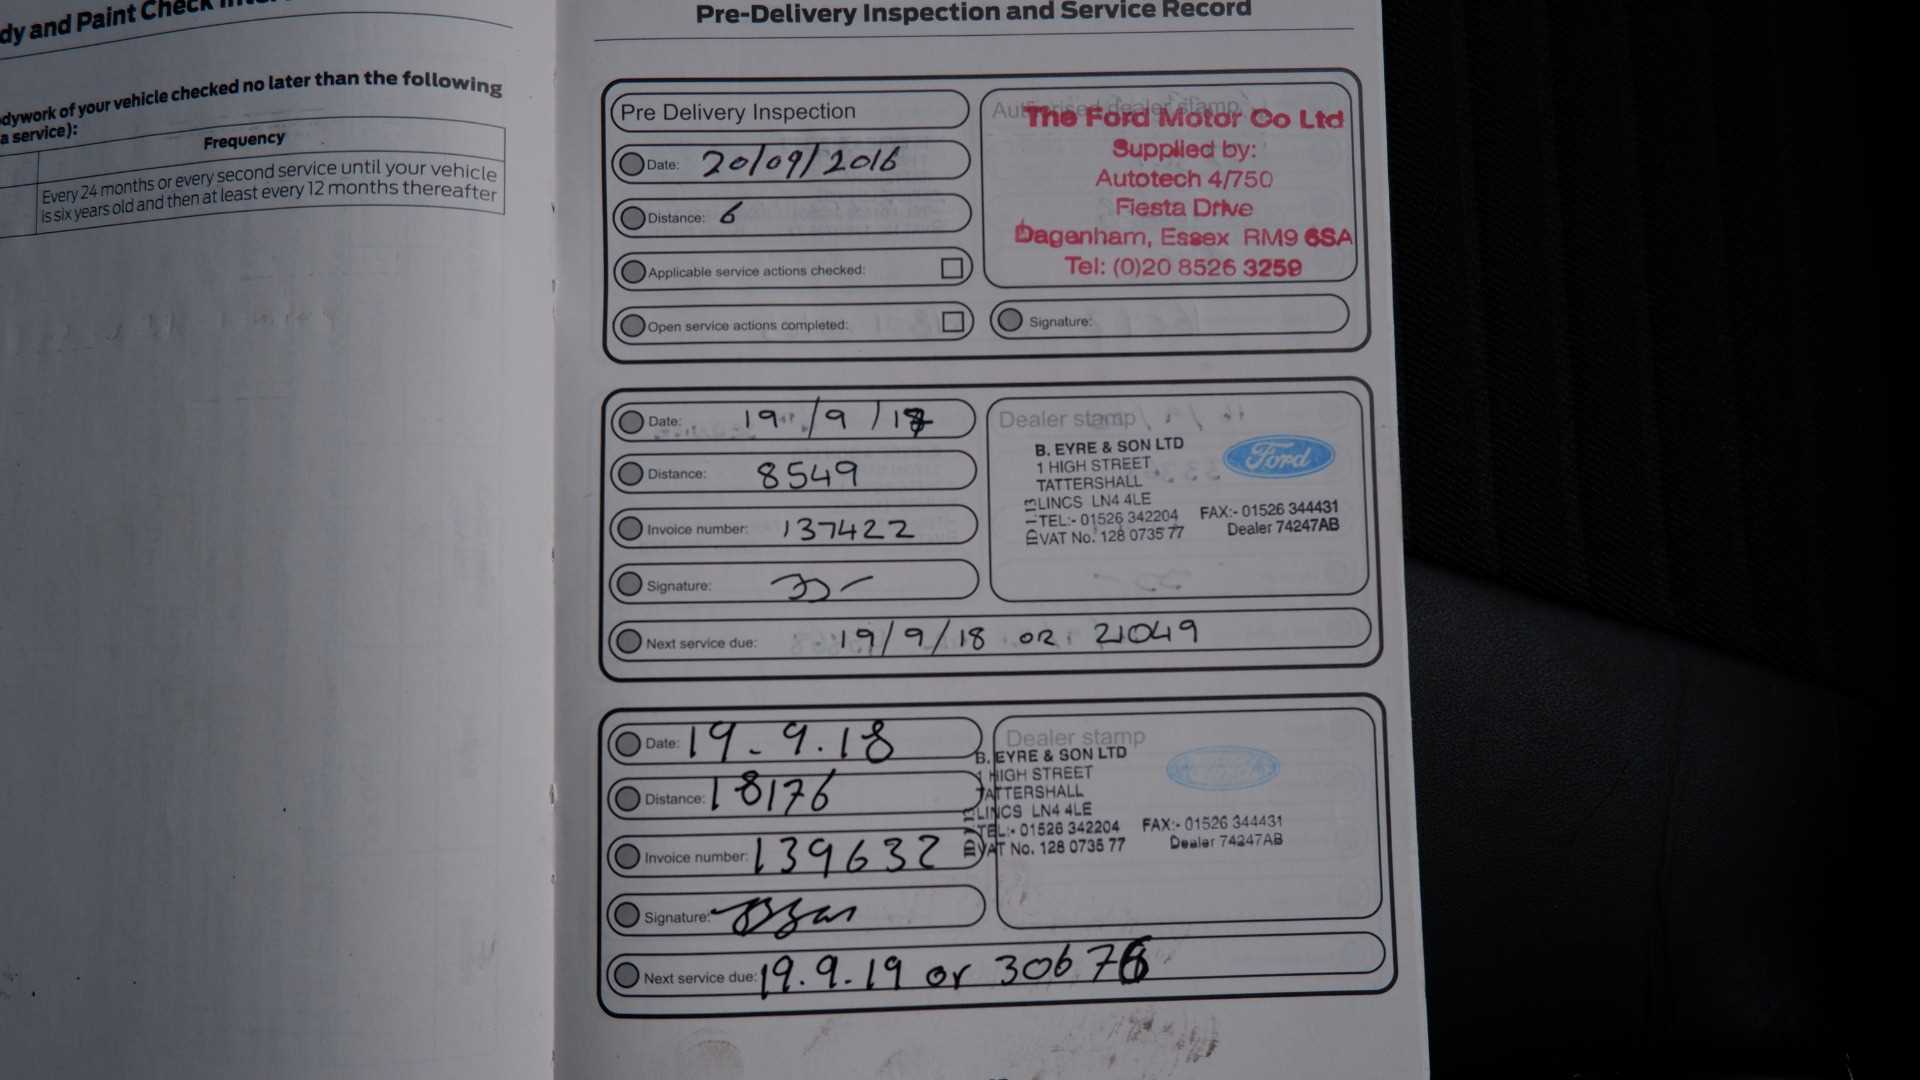 dy and Paint Check
dywork of your vehicle checked no later than the following
a service):
Frequency
Every 24 months or every second service until your vehicle
is six years old and then at least every 12 months thereafter
Pre-Delivery Inspection and Service Record
Pre Delivery Inspection
Date: 20/09/2016
Distance: 6
Applicable service actions checked:
Open service actions completed:
Authorised dealer stamp
The Ford Motor Co Ltd
Supplied by:
Autotech 4/750
Fiesta Drive
Dagenham, Essex RM9 6SA
Tel: (0)20 8526 3259
Signature:
Date: 19/9/17
Distance: 8549
Invoice number: 137422
Signature:
Next service due: 19/9/18 OR 21049
Dealer stamp
B. EYRE & SON LTD
1 HIGH STREET
TATTERSHALL
LINCS LN4 4LE
TEL:- 01526 342204 FAX:- 01526 344431
VAT No. 128 0735 77 Dealer 74247AB
Ford
Date: 19.9.18
Distance: 18176
Invoice number: 139632
Signature:
Next service due: 19.9.19 or 30676
Dealer stamp
B. EYRE & SON LTD
1 HIGH STREET
TATTERSHALL
LINCS LN4 4LE
TEL:- 01526 342204 FAX:- 01526 344431
VAT No. 128 0735 77 Dealer 74247AB